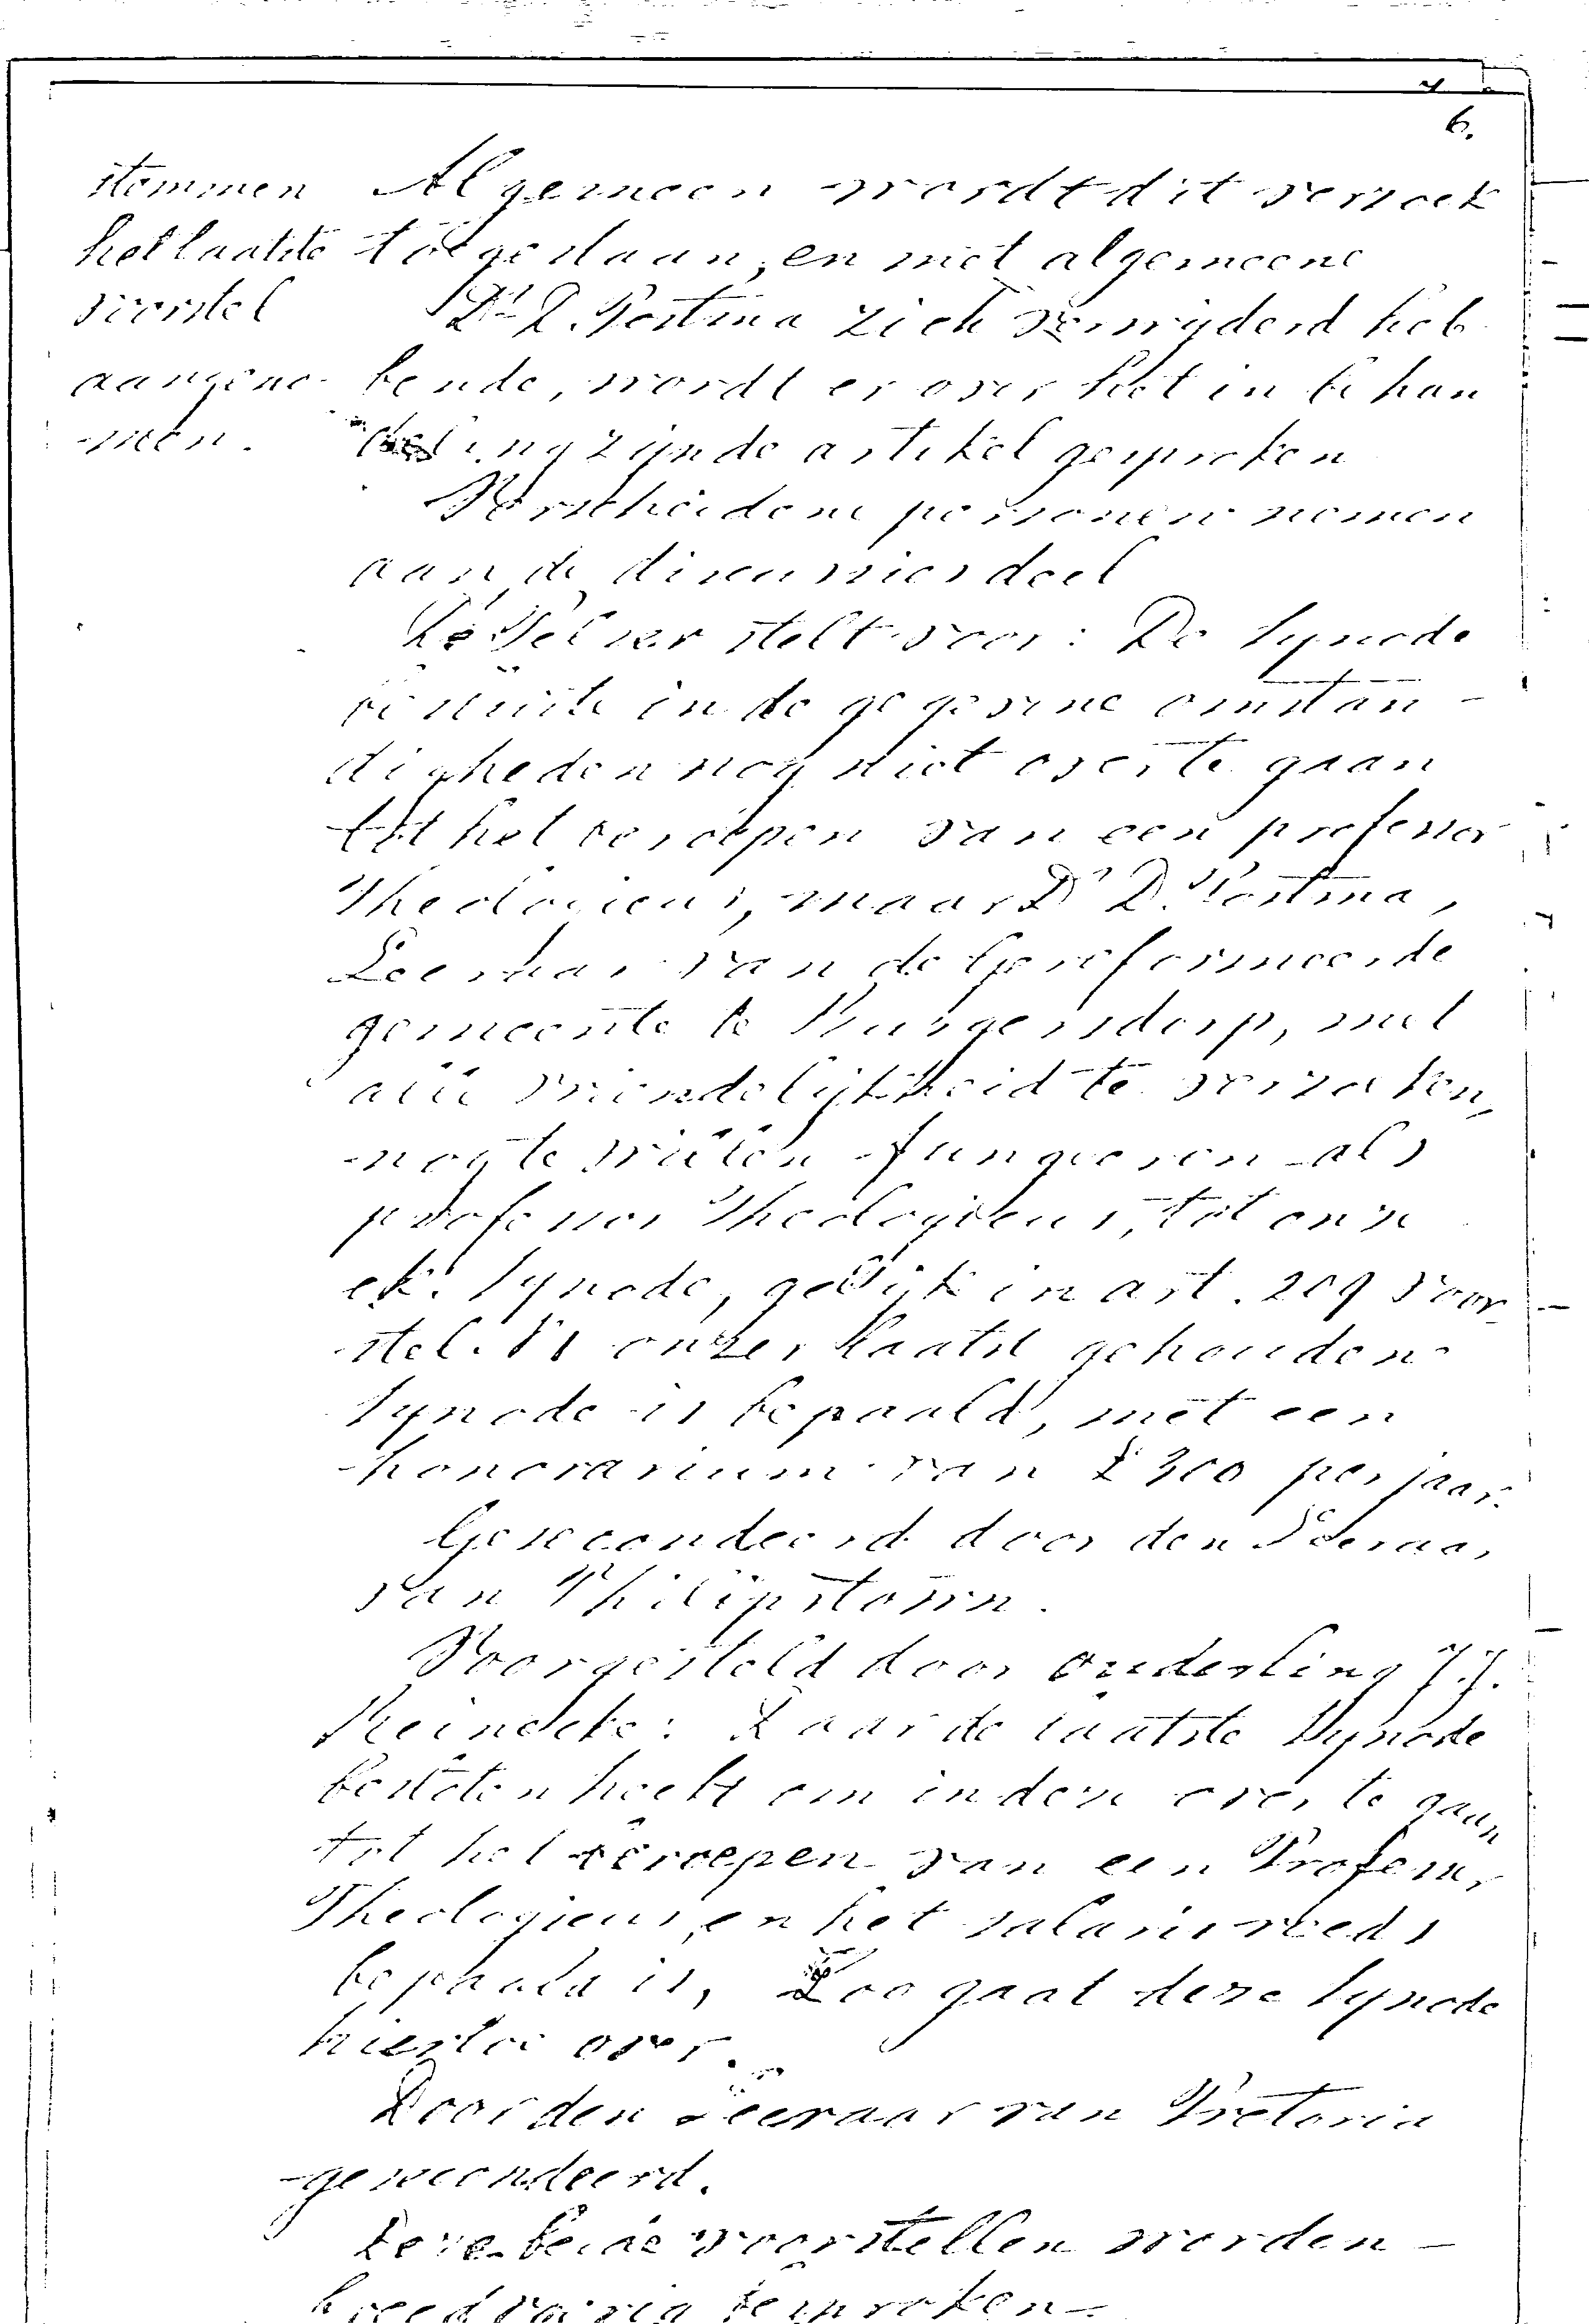 6.
stemmen
het laatste
voorstel
aangeno-
men.
Algemeen wordt dit verzoek
toegestaan, en met algemeene
Ds D. Postma zich verwijderd heb
bende, wordt er over het in behan
deling zijnde artikel gesproken
Verscheidene personen nemen
aan de discussies deel
De Scriba stelt voor: De Synode
besluite in de gegevene omstan-
digheden nog niet over te gaan
tot het beroepen van een professor
Theologicus, maar Ds D. Postma,
Leeraar van de Gereformeerde
gemeente te Burgersdorp, met
alle vriendelijkheid te verzoeken,
nog te willen fungeeren als
professor Theologicus, tot onze
ek. Synode, gelijk in art. 209 voor-
stel. onzer laatst gehouden
Synode is bepaald, met een
honorarium van £300 per jaar.
Gesecondeerd door den Leeraar
van Philipstown.
Voorgesteld door ouderling J.J.
Reineke: Daar de laatste Synode
besloten heeft om in dezen over te gaan
tot het beroepen van een Professor
Theologicus, en het salaris reeds
bepaald is, Zoo gaat deze Synode
hiertoe over.
Door den Leeraar van Pretoria
gesecondeerd.
Deze beide voorstellen worden
breedvoerig besproken-